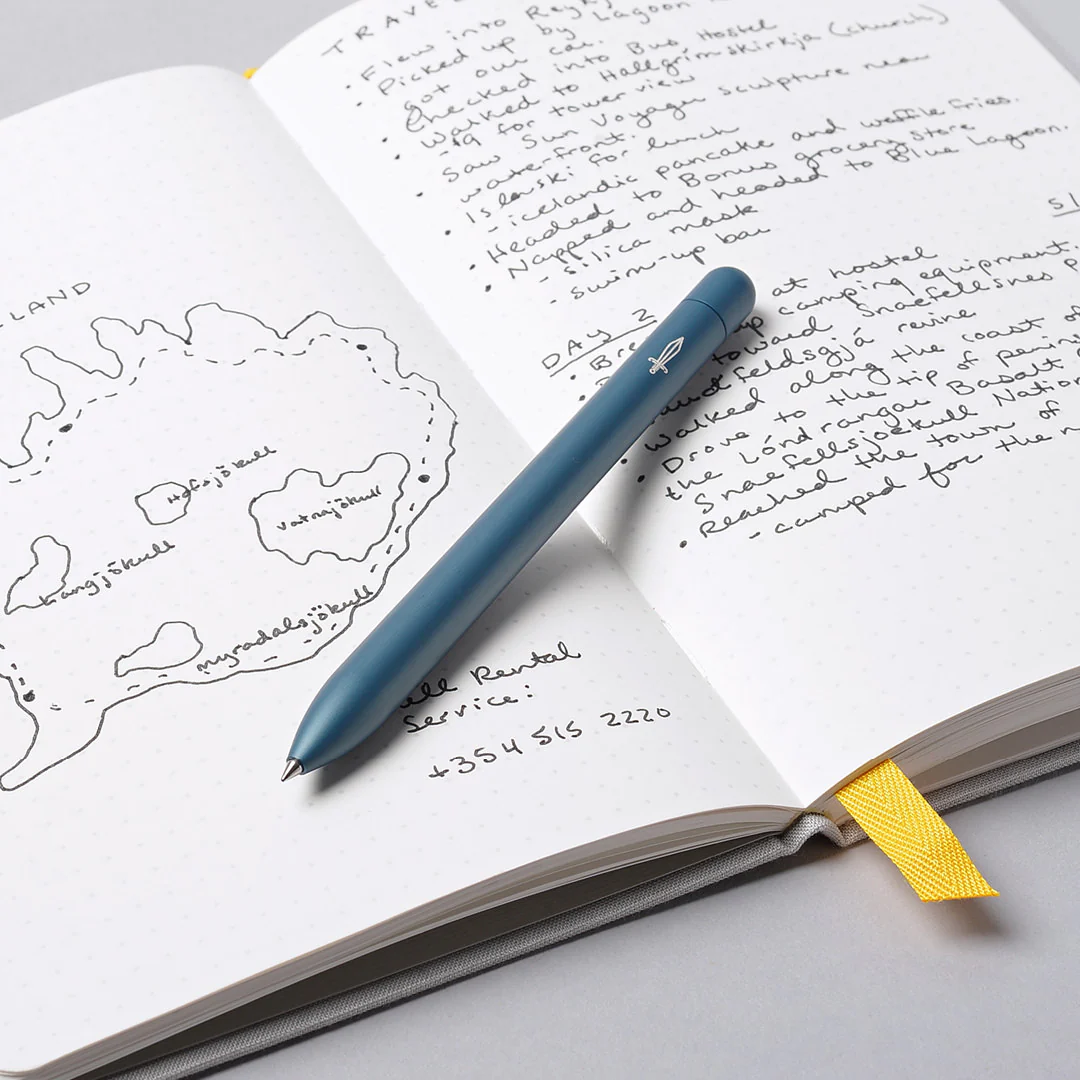 LAND
Hofsjökull
vatnajökull
Langjökull
myradalsjökull
Rental
Service:
+354 515 2220
TRAVEL
• Flew into Reyk
• Picked up by Lagoon
got our car.
• Checked into Bus Hostel
• Walked to Hallgrimskirkja (church)
-$9 for tower view
• Saw Sun Voyager sculpture near
waterfront.
• Islenski for lunch
- icelandic pancake and waffle fries.
• Headed to Bonus grocery store
• Napped and headed to Blue Lagoon.
- silica mask
- swim-up bar
DAY 2
• at hostel
up camping equipment.
toward Snaefellsnes
revine
• Walked along the coast of
• Drove to the tip of
the Lóndrangar Basalt
Snaefellsjoekull
• Reached the town of
- camped for the